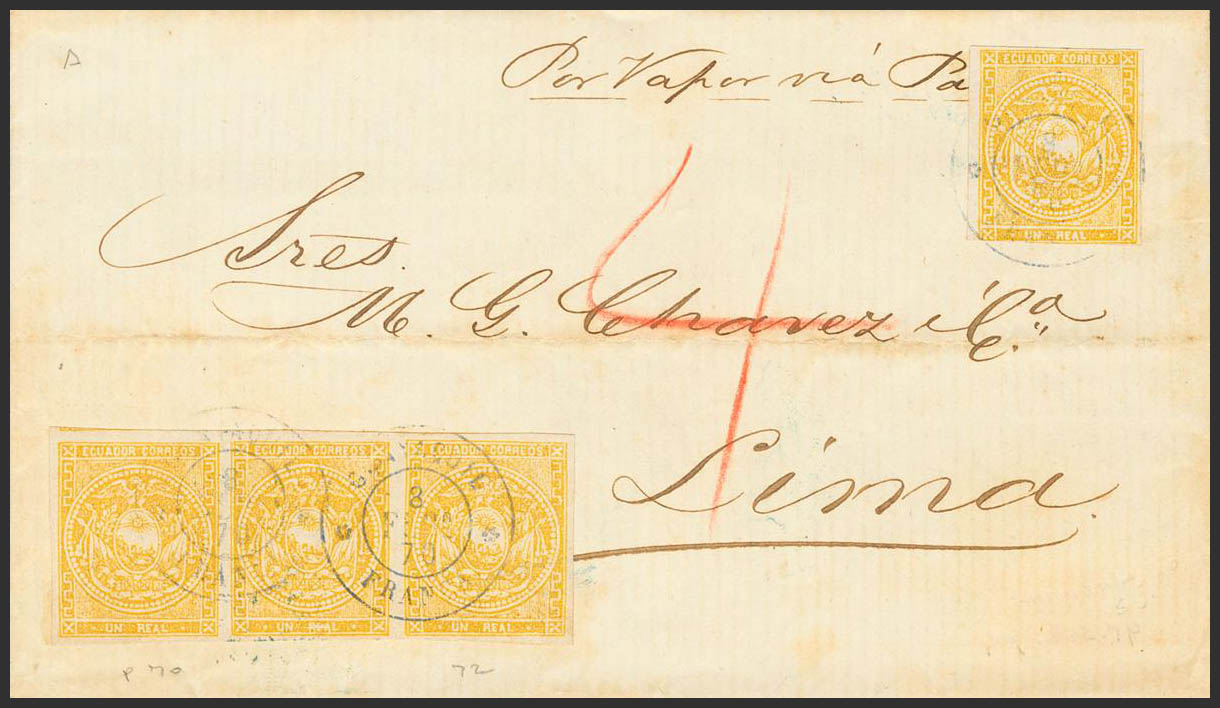 Por Vapor via Pa
ECUADOR CORREOS
UN REAL
Sres.
M. G. Chavez y Ca
4
Lima
ECUADOR CORREOS
UN REAL
ECUADOR CORREOS
UN REAL
ECUADOR CORREOS
UN REAL
8
70
FRAN
P 70
72